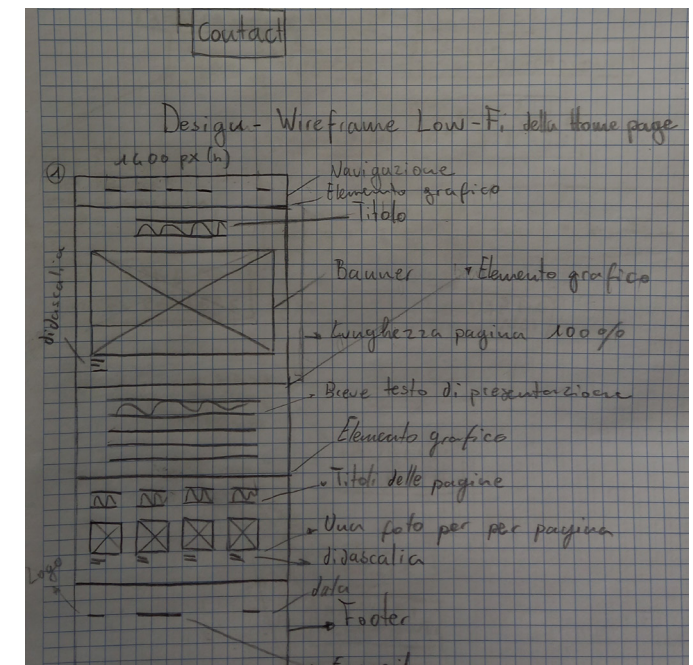 Contact
Design - Wireframe Low-Fi della Home page
1400 px (h)
1
Navigazione
Elemento grafico
Titolo
didascalia
Banner
Elemento grafico
Lunghezza pagina 100%
Breve testo di presentazione
Elemento grafico
Titoli delle pagine
Una foto per per pagina
didascalia
Logo
data
Footer